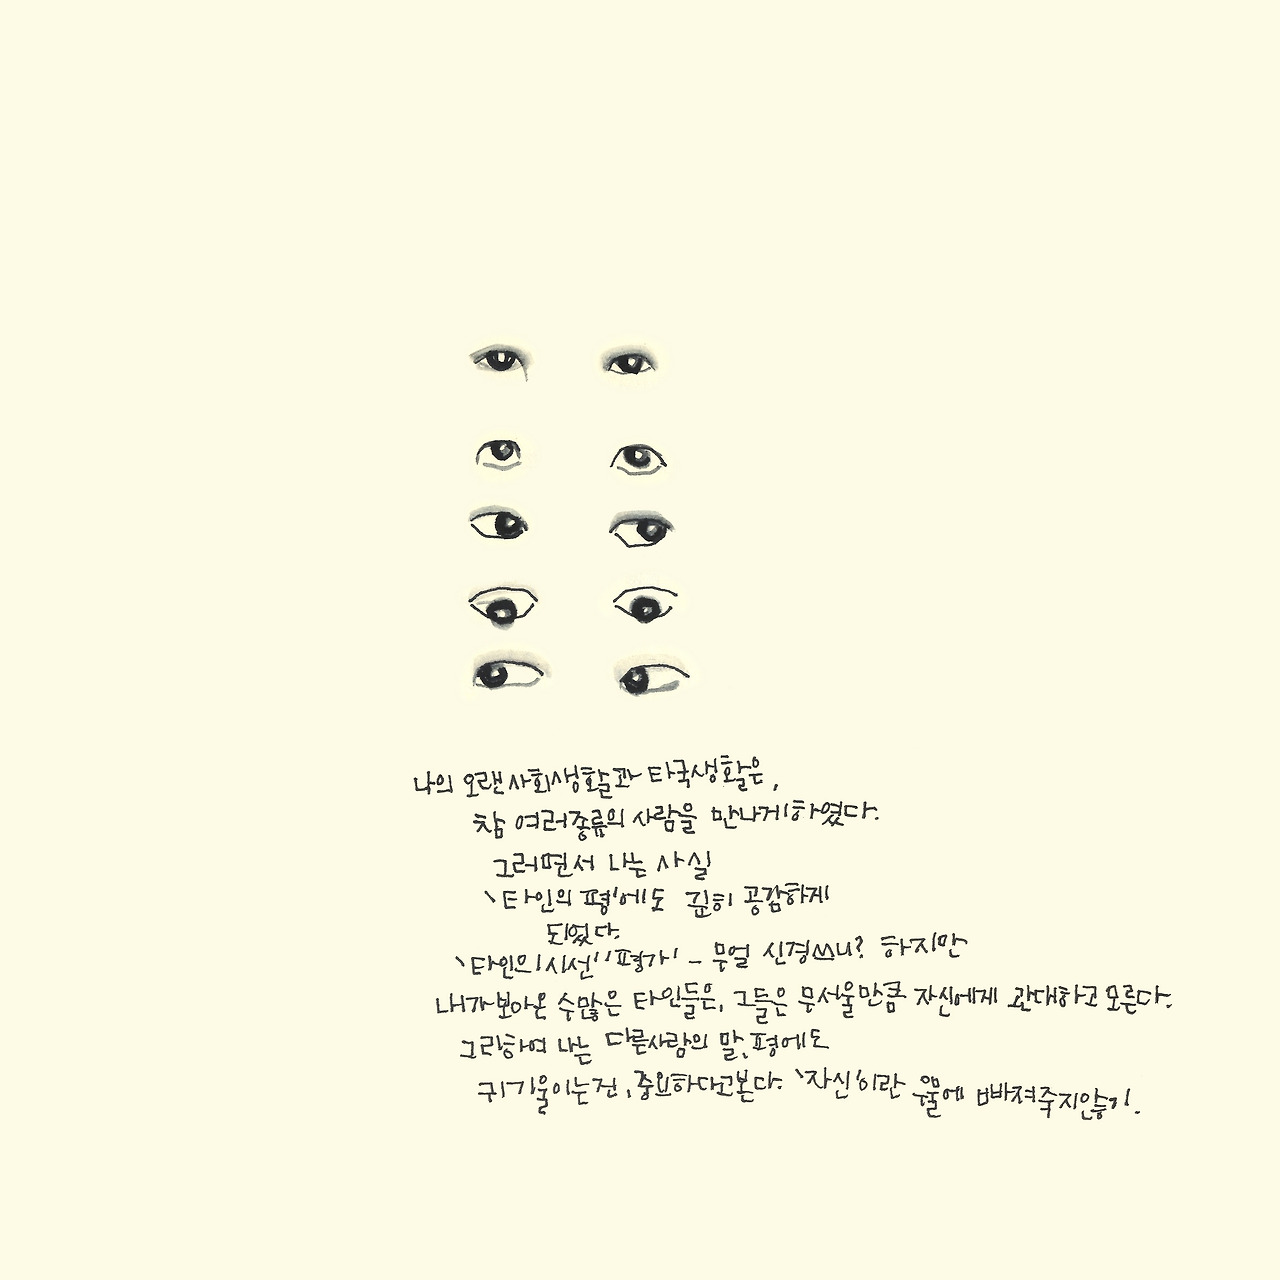 나의 오랜 사회생활과 타국생활은,
참 여러종류의 사람을 만나게하였다.
그러면서 나는 사실
'타인의 평'에도 깊히 공감하게
되었다.
'타인의시선''평가' - 무얼 신경쓰니? 하지만
내가보아온 수많은 타인들은, 그들은 무서울만큼 자신에게 관대하고 모른다.
그리하여 나는 다른사람의 말,평에도
귀기울이는건,중요하다고본다. '자신'이란 우물에 빠져죽지않기.